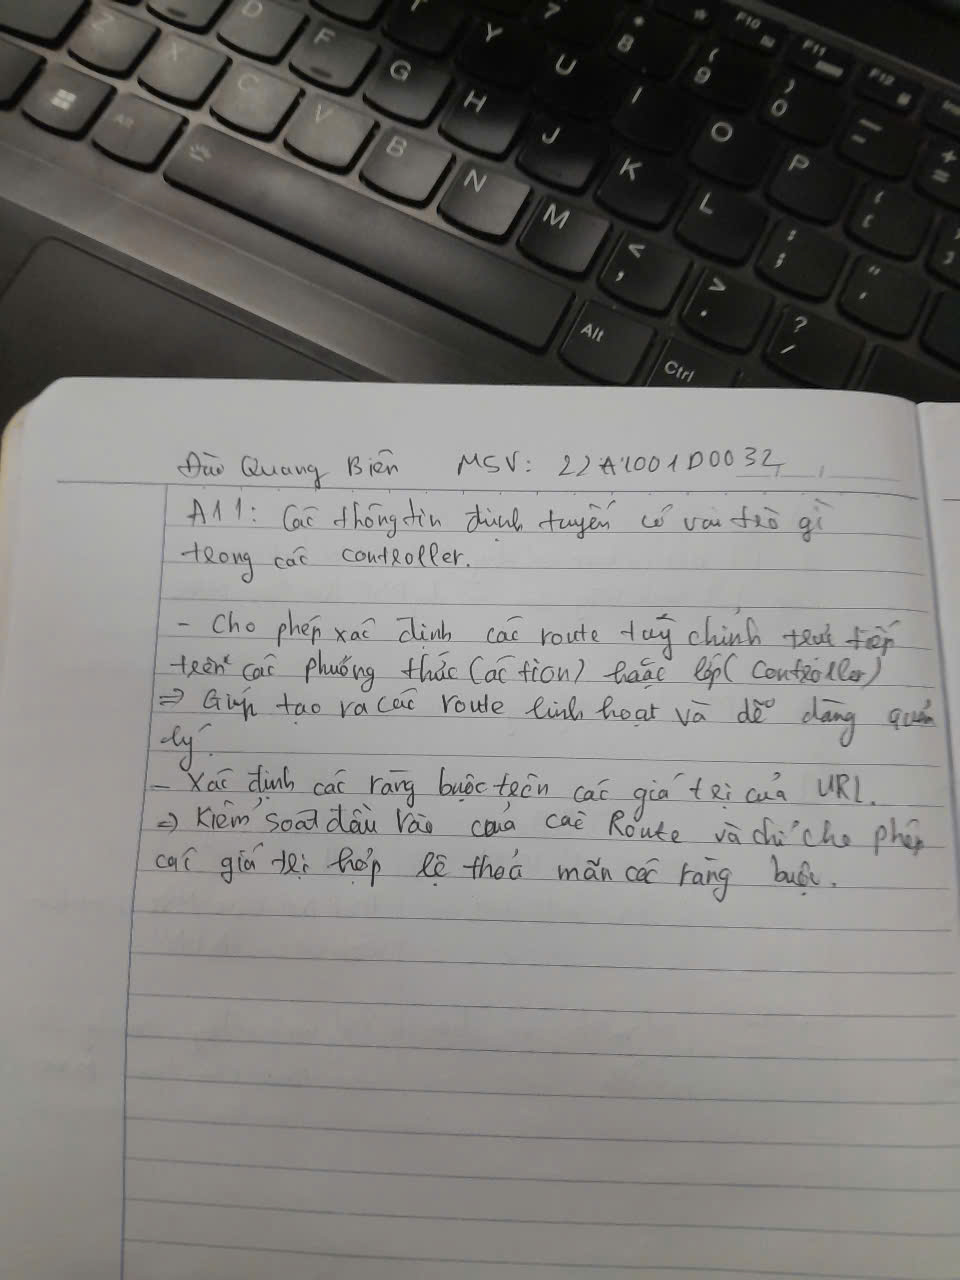 Z
X
D
C
F
V
G
B
Y
H
N
U
J
M
7
8
I
K
9
O
L
0
P
F10
F11
F12
Alt
Alt
Ctrl
Đào Quang Biên MSV: 22A1001D0032
A11: Các thông tin định tuyến có vai trò gì
trong các controller.
- Cho phép xác định các route tuỳ chỉnh trực tiếp
trên các phương thức (Action) hoặc lớp (Controller)
=> Giúp tạo ra các route linh hoạt và dễ dàng quản
lý.
- Xác định các ràng buộc trên các giá trị của URL.
=> Kiểm soát đầu vào của các Route và chỉ cho phép
các giá trị hợp lệ thoả mãn các ràng buộc.